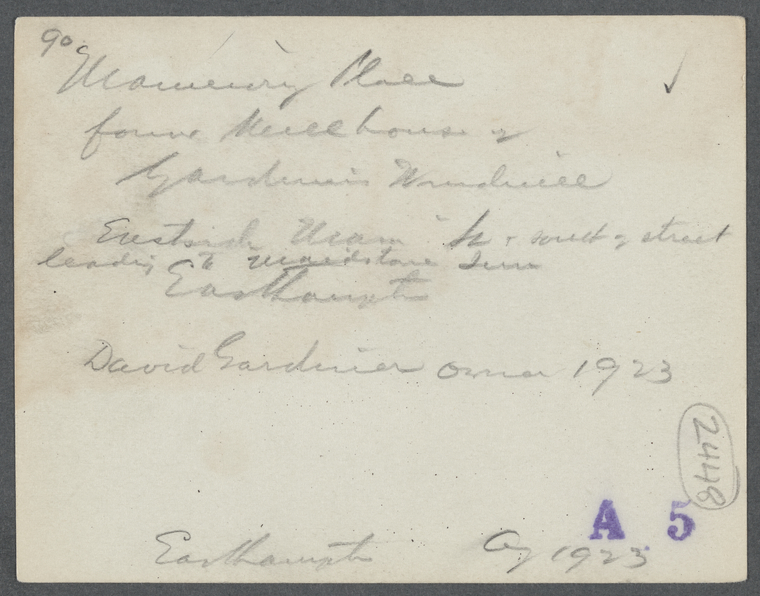 90
Place
former Mill house of
Gardiner's Windmill
East side Main St + south of street
leading to Maidstone Inn
Easthampton
David Gardiner owner 1923
2448
A 5
Easthampton Ag 1923